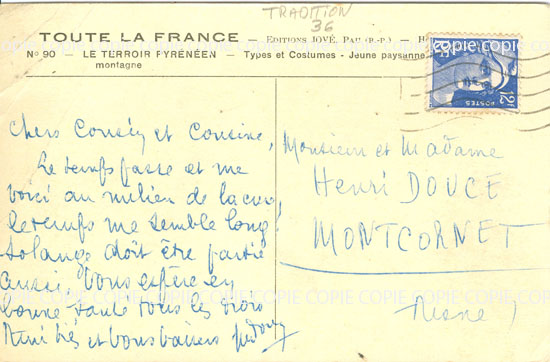 TRADITION
36
TOUTE LA FRANCE — EDITIONS JOVÉ, PAU (B.-P.) —
No 90 — LE TERROIR PYRÉNÉEN — Types et Costumes - Jeune paysanne
montagne
12F
POSTES
Chers Cousin et Cousine,
Le temps passe et me
voici au milieu de la cure,
le temps me semble long
Solange doit être partie
aussi. Vous espère en
bonne santé tous les trois
et vous baisers
Monsieur et Madame
Henri DOUCE
MONTCORNET
Aisne
COPIE COPIE COPIE COPIE COPIE COPIE COPIE COPIE